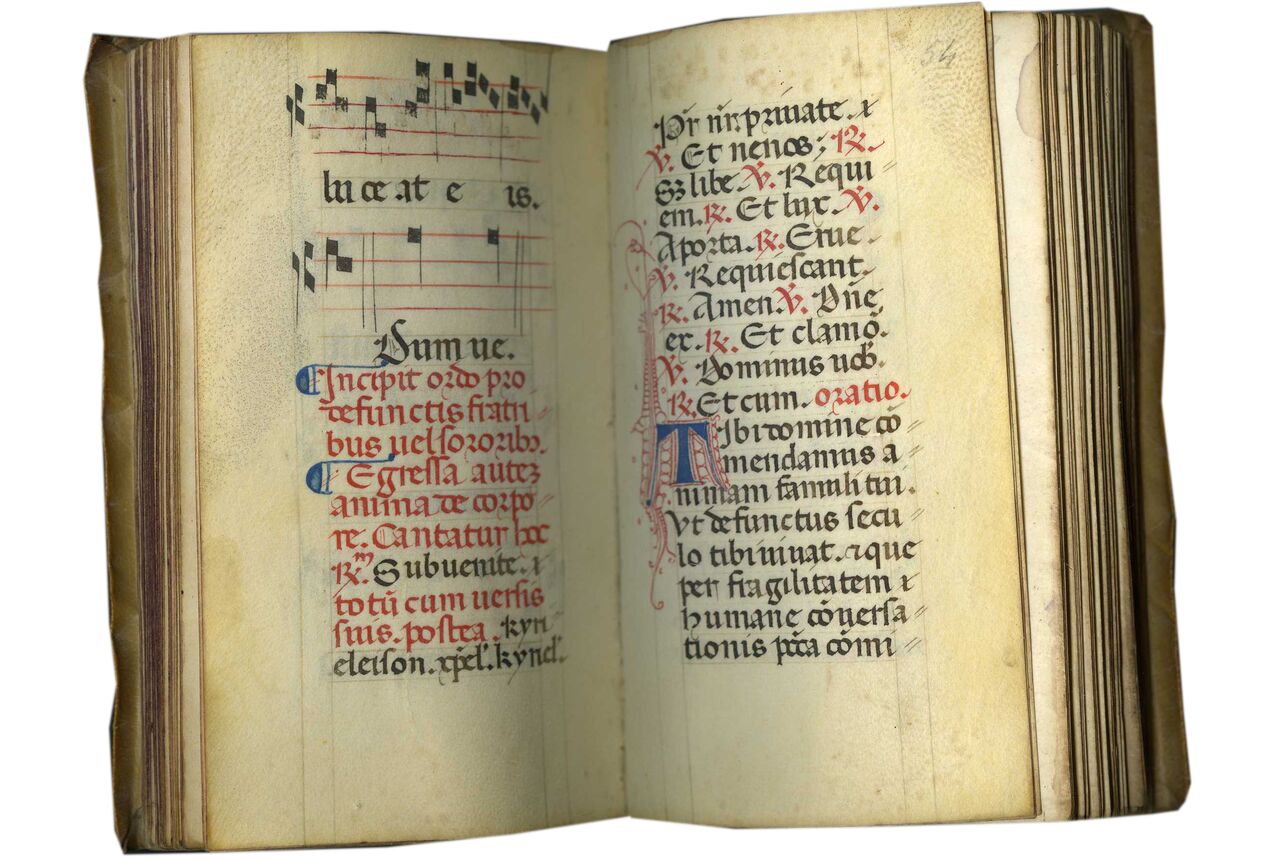 lu ce at e is.
Dum ue.
Incipit ordo pro
defunctis fratri
bus uel sororibꝫ.
Egressa auteꝫ
anima de corpo
re. Cantatur hoc
℟. Subuenite. ⁊
totū cum uersis
suis. postea. kyri
eleison. xp̄el'. kyriel'.
54
Pr̄ nr̄. priuate. ⁊
℣. Et nenos; ℟.
Sꝫ libe. ℣. Requi
em. ℟. Et lux. ℣.
Aporta. ℟. Erue.
℣. Requiescant.
℟. Amen. ℣. Dn̄e
ex. ℟. Et clamō.
℣. Dominus uob'.
℟. Et cum. oratio.
Tibi domine cō
mendamus a
nimam famuli tui.
Vt defunctus secu
lo tibi uiuat. ⁊ que
per fragilitatem
humane cōuersa
tionis pc̄ca cōmi